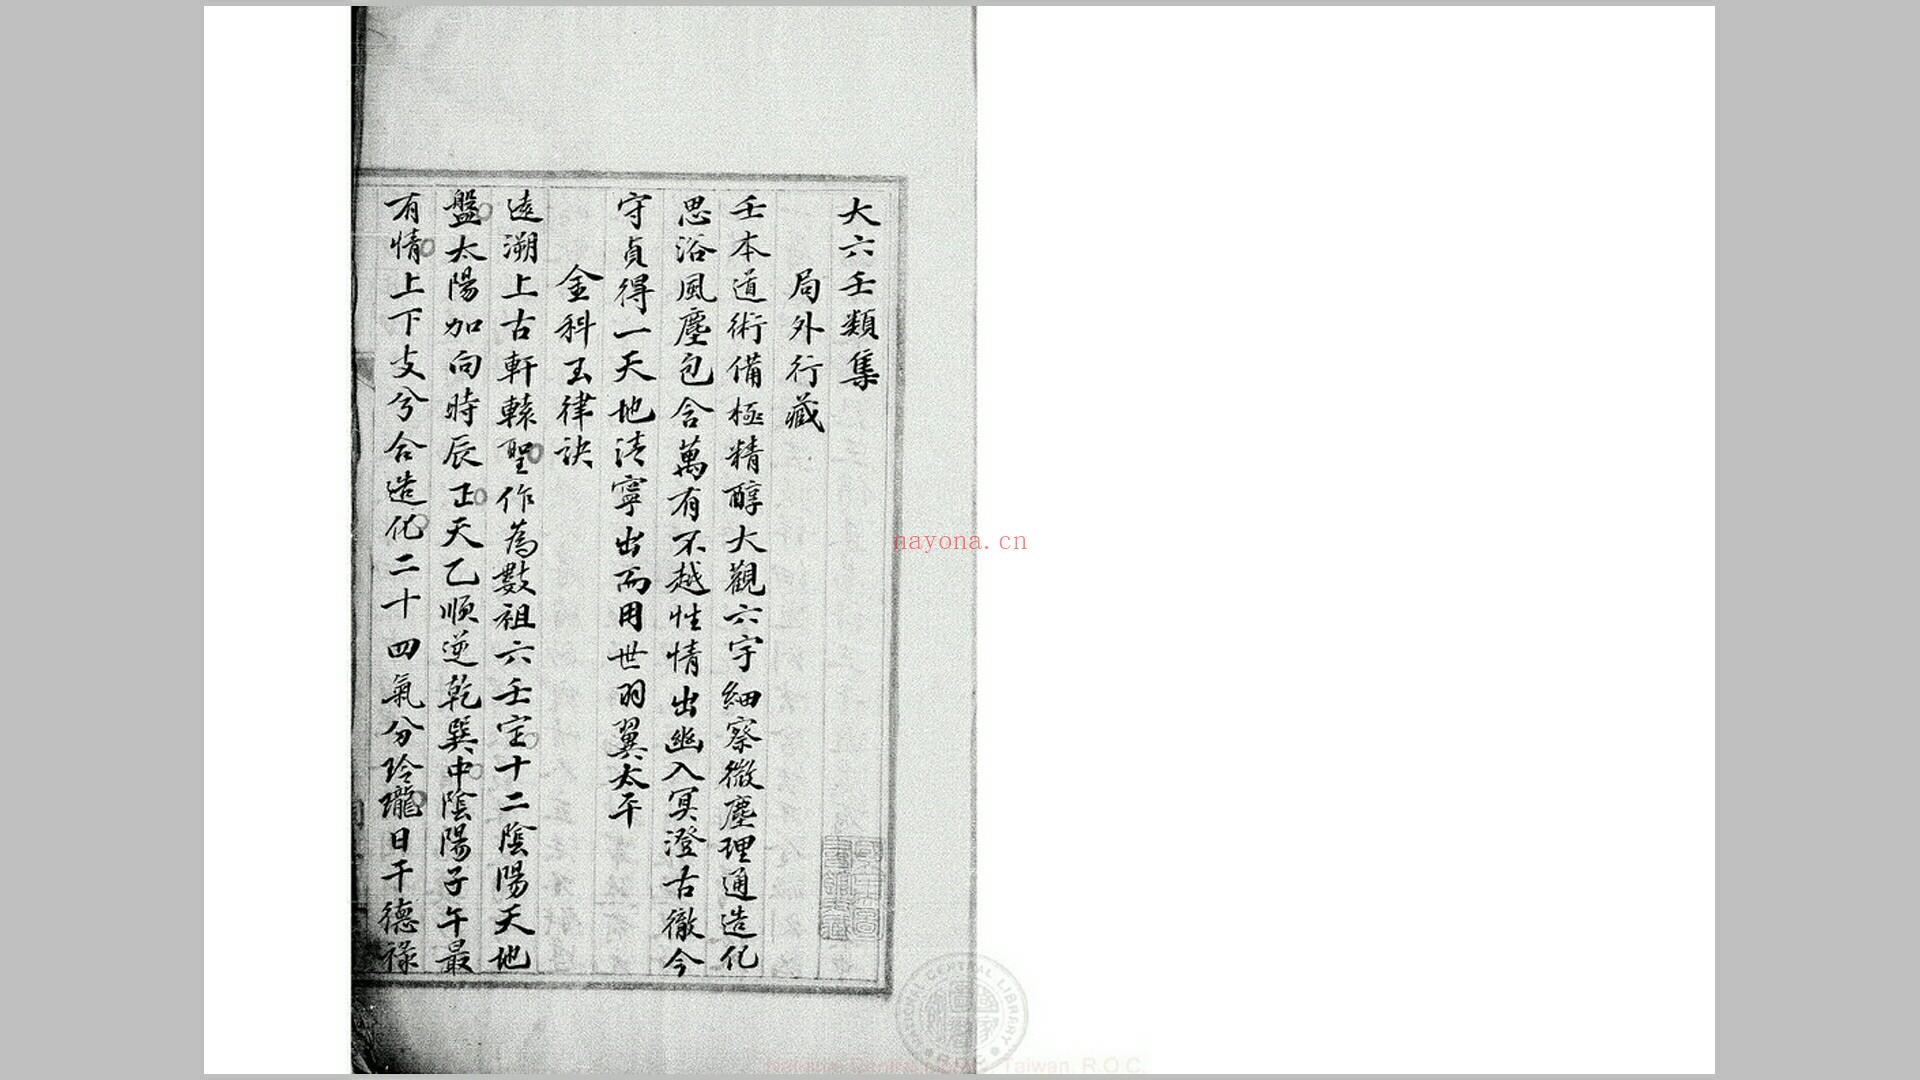 大六壬類集
局外行藏
壬本道術備極精醇大觀六宇細察微塵理通造化
思浴風塵包含萬有不越性情出幽入冥澄古徹今
守貞得一天地清寧出而用世羽翼太平
金科玉律訣
遠溯上古軒轅聖作為數祖六壬定十二陰陽天地
盤太陽加向時辰正天乙順逆乾巽中陰陽子午最
有情上下支兮合造化二十四氣分玲瓏日干德祿
nayona.cn
NATIONAL CENTRAL LIBRARY R.O.C.
Taiwan, R.O.C.